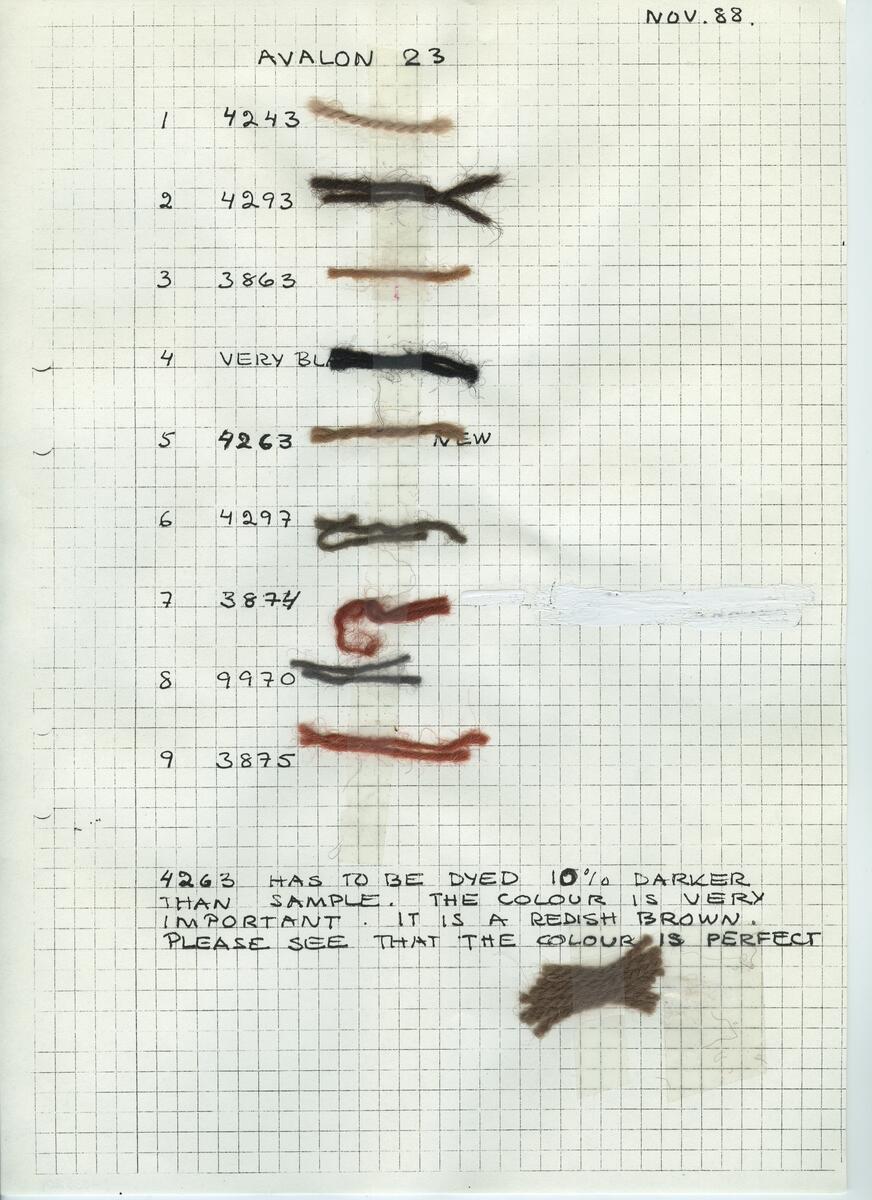 NOV. 88.
AVALON 23
1 4243
2 4293
3 3863
4 VERY
5 4263 NEW
6 4297
7 3874
8 9970
9 3875
4263 HAS TO BE DYED 10% DARKER
THAN SAMPLE. THE COLOUR IS VERY
IMPORTANT. IT IS A REDISH BROWN.
PLEASE SEE THAT THE COLOUR IS PERFECT